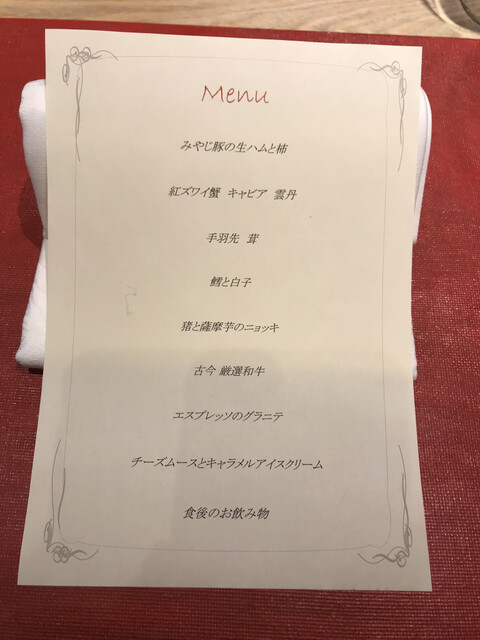 Menu
みやじ豚の生ハムと柿
紅ズワイ蟹 キャビア 雲丹
手羽先 茸
鱈と白子
猪と薩摩芋のニョッキ
古今 厳選和牛
エスプレッソのグラニテ
チーズムースとキャラメルアイスクリーム
食後のお飲み物